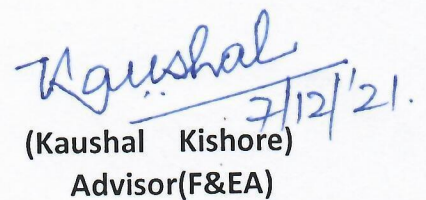 Kaushal
7/12/'21.
(Kaushal Kishore)
Advisor(F&EA)